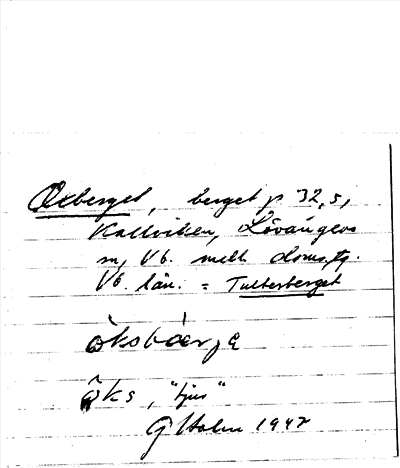 Oxberget, berget p 32,5,
Kallviken, Lövångers
m, Vb. mell. doms.
Vb. län. = Tutterberget
öksbær
öks, "tjur"
G Holm 1942